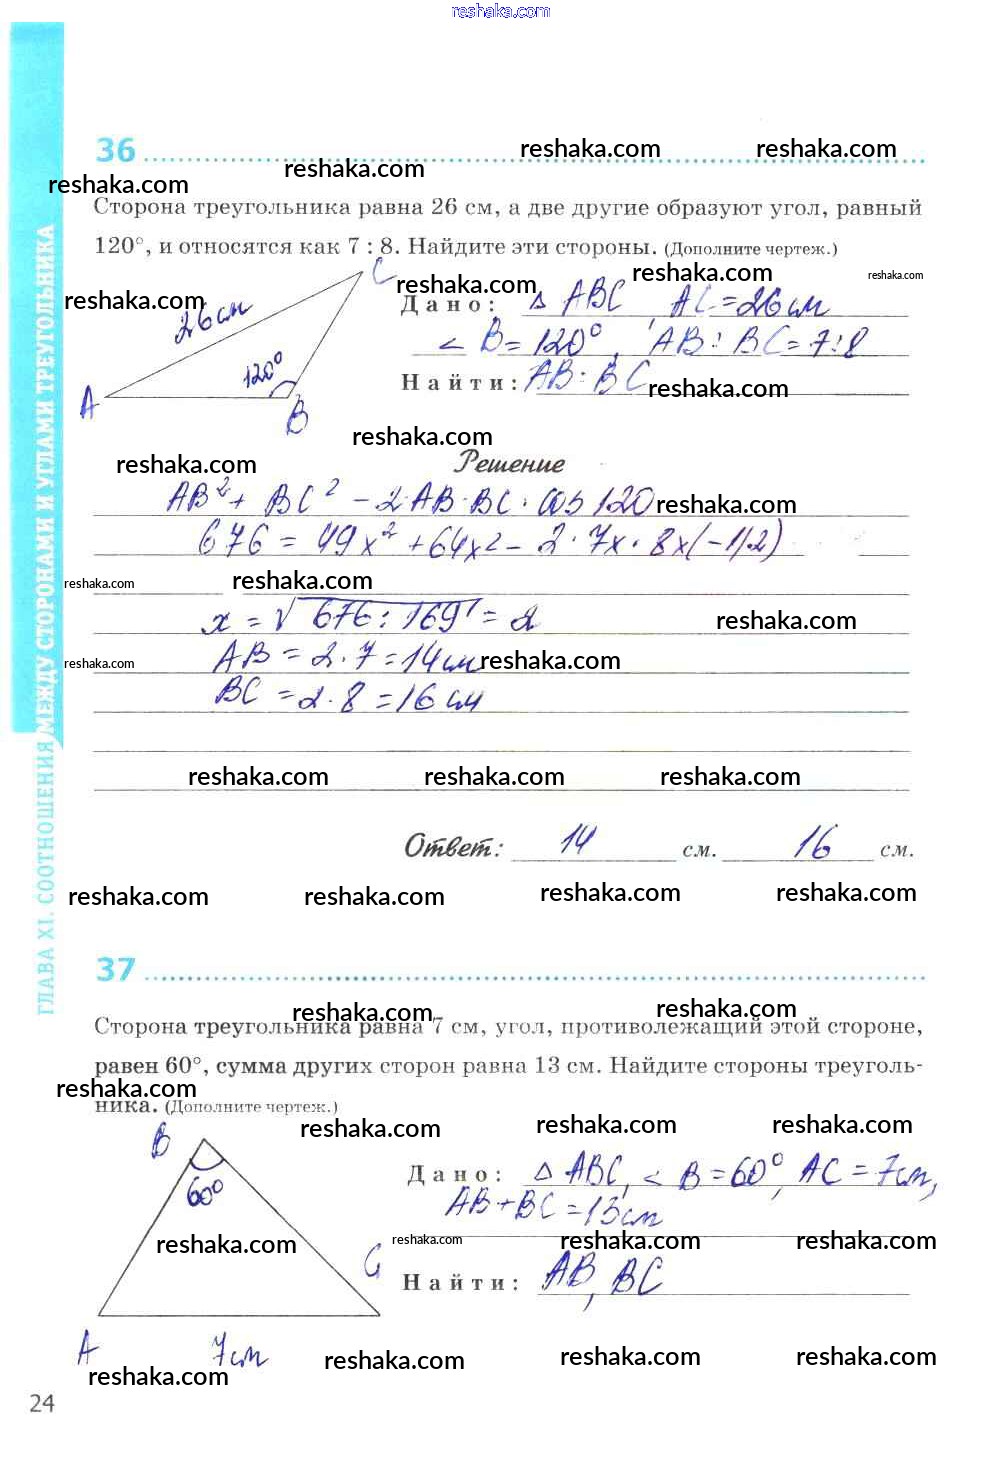 reshaka.com
36
reshaka.com reshaka.com
reshaka.com
reshaka.com
Сторона треугольника равна 26 см, а две другие образуют угол, равный
120°, и относятся как 7 : 8. Найдите эти стороны. (Дополните чертеж.)
C
reshaka.com reshaka.com reshaka.com
reshaka.com
26 см
Дано: Δ ABC, AC = 26 см
∠ B = 120°, AB : BC = 7 : 8
120°
Найти: AB : BC
reshaka.com
A
B
reshaka.com
reshaka.com
Решение
AB² + BC² - 2·AB·BC·cos 120
reshaka.com
676 = 49x² + 64x² - 2·7x·8x(-1/2)
reshaka.com reshaka.com
x = √676:169 = 2
reshaka.com
AB = 2·7 = 14 см
reshaka.com reshaka.com
BC = 2·8 = 16 см
reshaka.com reshaka.com reshaka.com
Ответ: 14 см. 16 см.
reshaka.com reshaka.com reshaka.com reshaka.com
37
reshaka.com reshaka.com
Сторона треугольника равна 7 см, угол, противолежащий этой стороне,
равен 60°, сумма других сторон равна 13 см. Найдите стороны треуголь-
reshaka.com
ника. (Дополните чертеж.)
reshaka.com reshaka.com reshaka.com
B
60°
Дано: Δ ABC, ∠ B = 60°, AC = 7 см,
AB + BC = 13 см
reshaka.com reshaka.com reshaka.com reshaka.com
C
Найти: AB, BC
A 7 см
reshaka.com reshaka.com reshaka.com reshaka.com
24
ГЛАВА XI. СООТНОШЕНИЯ МЕЖДУ СТОРОНАМИ И УГЛАМИ ТРЕУГОЛЬНИКА